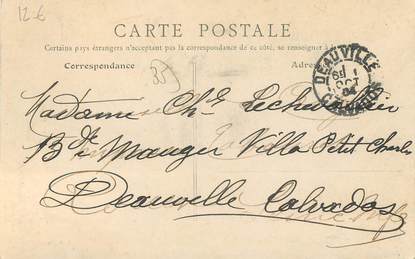 12 €
CARTE POSTALE
Certains pays étrangers n'acceptant pas la correspondance de ce côté, se renseigner à
Correspondance
Adres
35
DEAUVILLE
OCT
04
CALVADOS
Madame Ch.
Bd Mauger Villa Petit Charles
Deauville Calvados